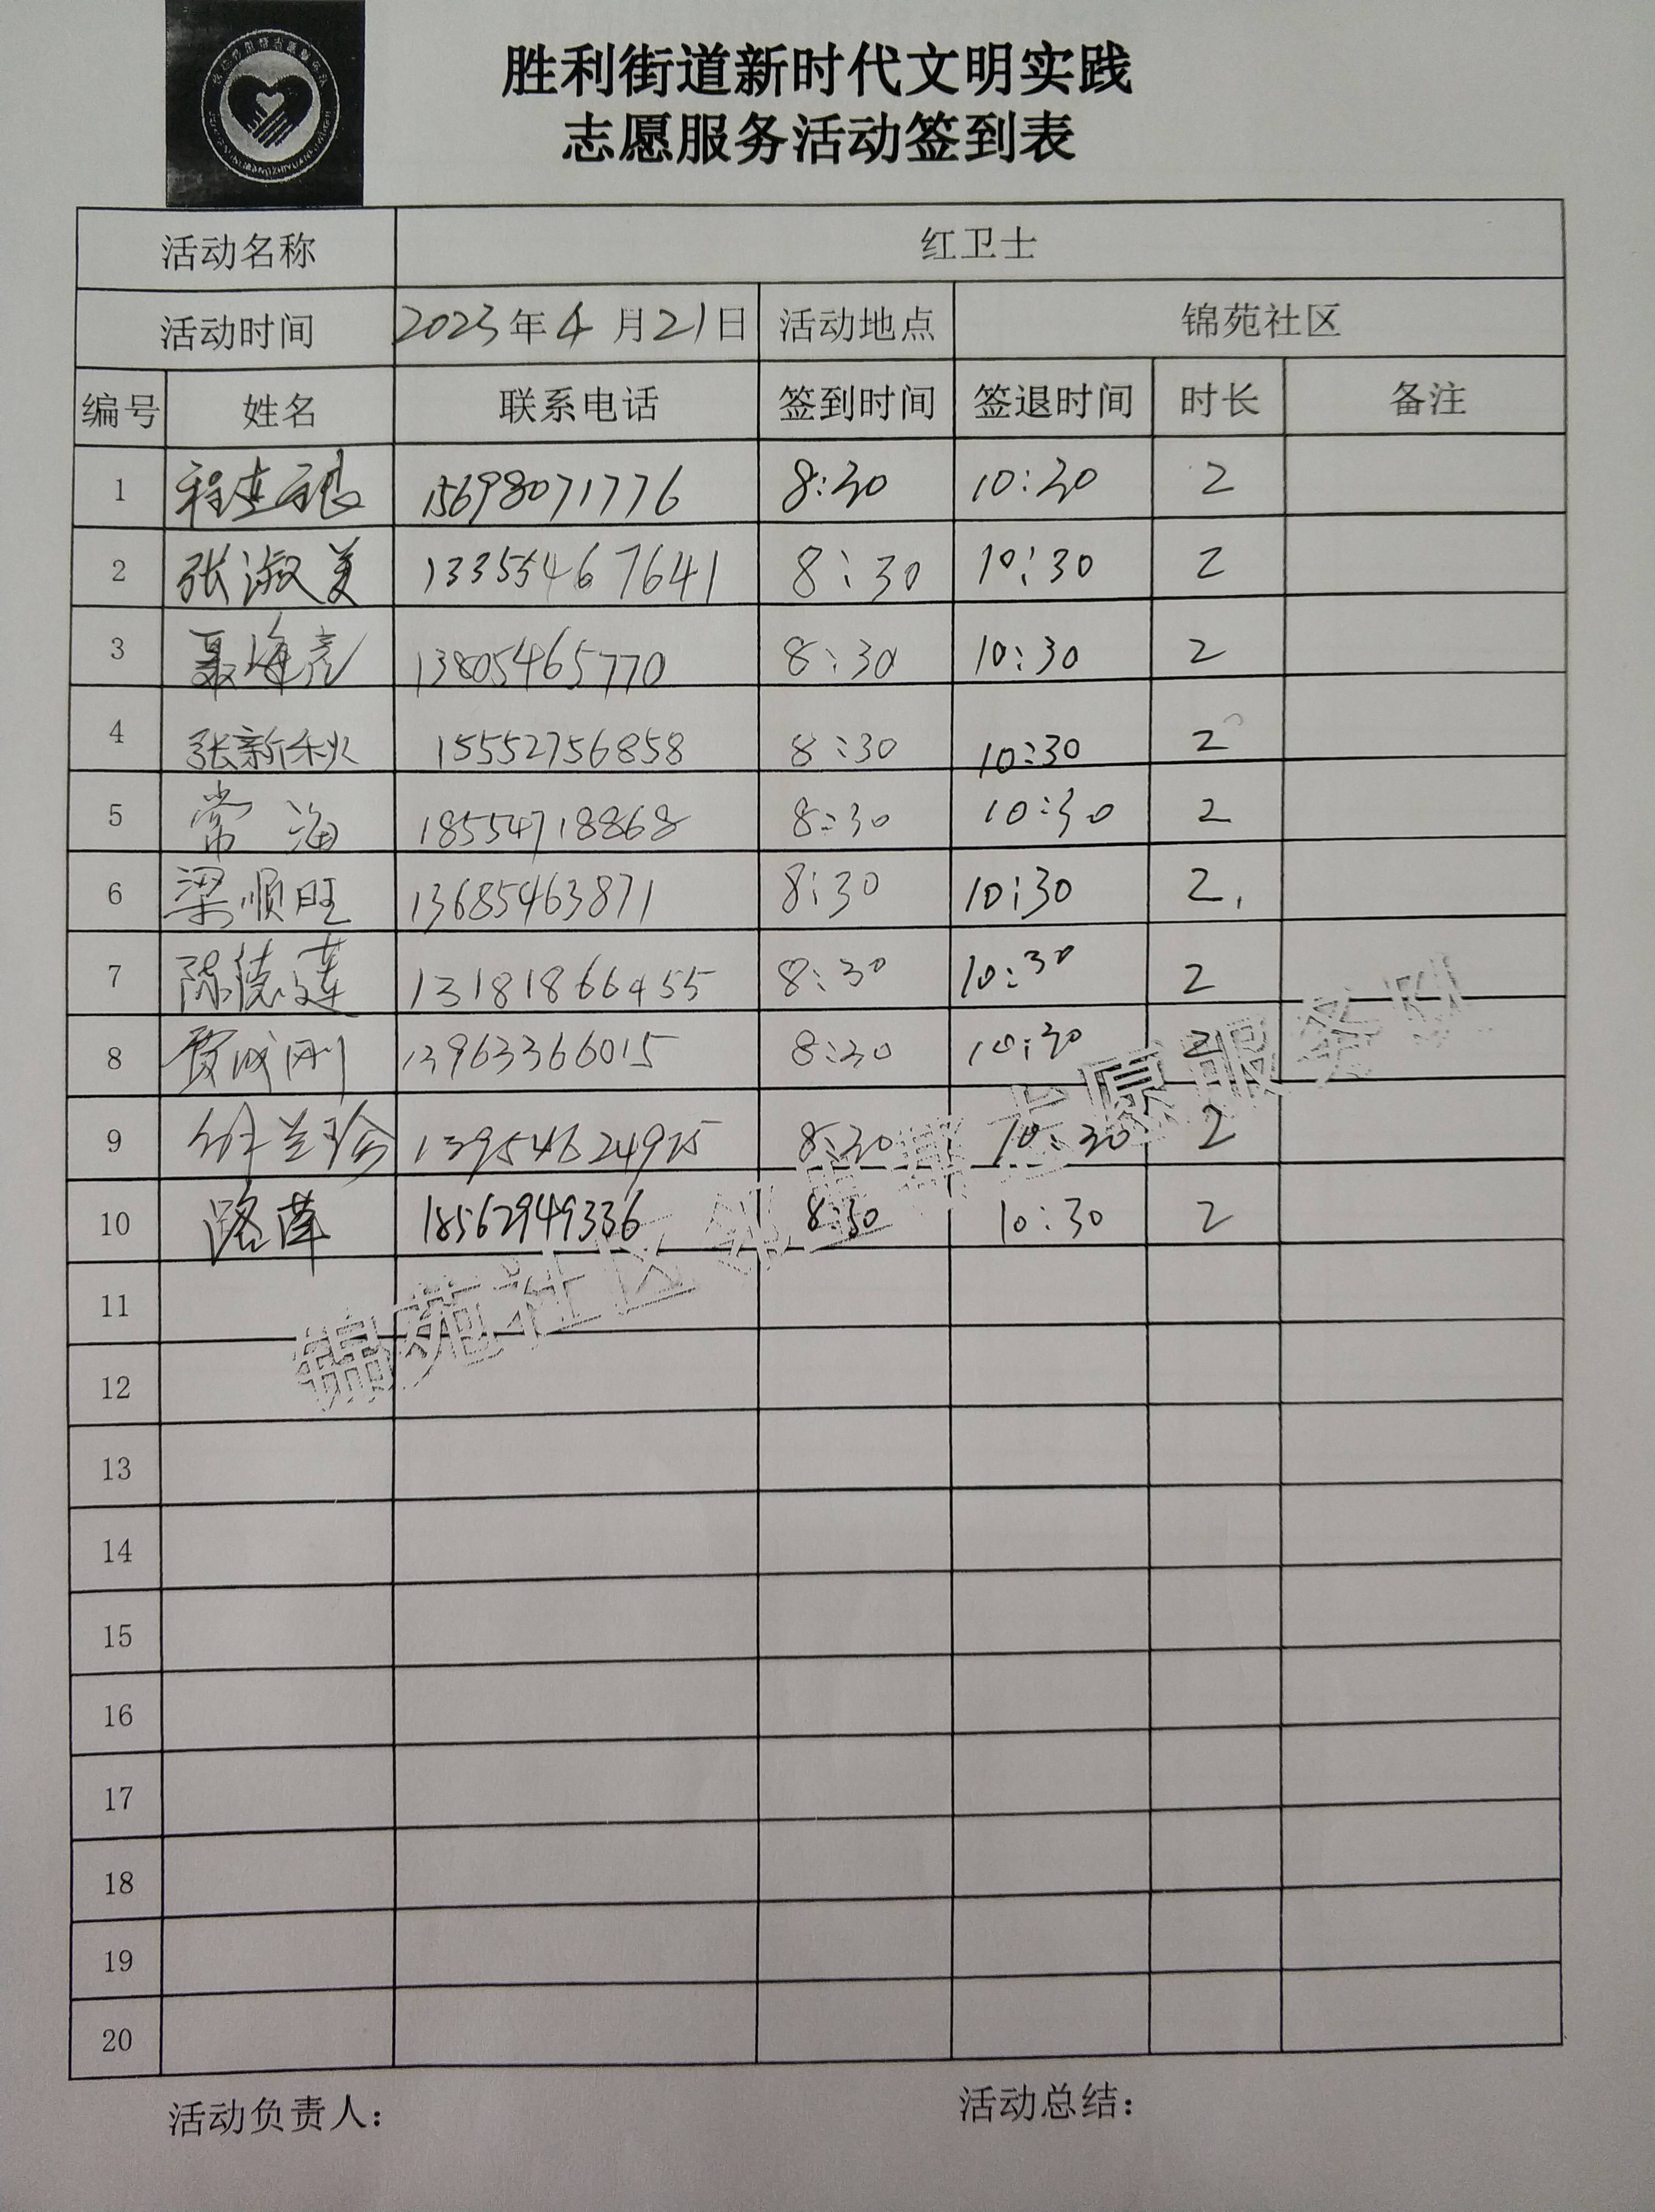 胜利街道新时代文明实践
志愿服务活动签到表
活动名称 红卫士
活动时间 2023年4月21日 活动地点 锦苑社区
编号 姓名 联系电话 签到时间 签退时间 时长 备注
1 15698071776 8:30 10:30 2
2 张淑美 13355467641 8:30 10:30 2
3 聂海亮 13805465770 8:30 10:30 2
4 张新秋 15552756858 8:30 10:30 2
5 常海 18554718868 8:30 10:30 2
6 梁顺旺 13685463871 8:30 10:30 2
7 陈德莲 13181866455 8:30 10:30 2
8 贾成刚 13963366015 8:30 10:30 2
9 13954624925 8:30 10:30 2
10 路萍 18562949336 8:30 10:30 2
11
12
13
14
15
16
17
18
19
20
锦苑社区 志愿服务队
活动负责人: 活动总结: